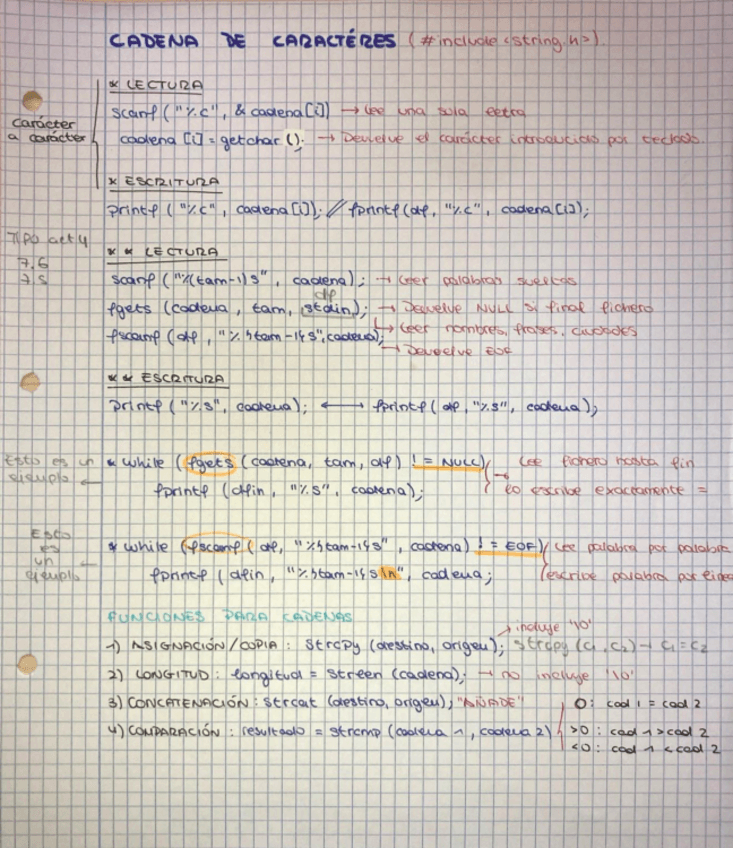 CADENA DE CARACTÉRES (#include <string.h>).
* LECTURA
carácter a carácter
scanf ("%c", & cadena[i]) → Lee una sola letra
cadena [i] = getchar (); → Devuelve el carácter introducido por teclado.
* ESCRITURA
printf ("%c", cadena[i]); // fprintf(df, "%c", cadena[i]);
TIPO act 4
7.6
7.5
* * LECTURA
scanf ("%(tam-1)s", cadena); → Leer palabras sueltas
df
fgets (cadena, tam, stdin); → Devuelve NULL si final fichero
→ Leer nombres, frases, ciudades
fscanf (df, "%(tam-1)s", cadena);
→ Devuelve EOF
* * ESCRITURA
printf ("%s", cadena); ⟷ fprintf( df, "%s", cadena);
Esto es un ejemplo ←
* while (fgets (cadena, tam, df) != NULL) Lee fichero hasta fin
fprintf (dfin, "%s", cadena); → lo escribe exactamente =
Esto es un ejemplo
* while (fscanf ( df, "%(tam-1)s", cadena) != EOF) Lee palabra por palabra
fprintf (dfin, "%(tam-1)s\n", cadena; escribe palabra por línea
FUNCIONES PARA CADENAS
→ incluye '\0'
1) ASIGNACIÓN/COPIA: strcpy (destino, origen); strcpy (c1, c2) → c1 = c2
2) LONGITUD: longitud = strlen (cadena); → no incluye '\0'
3) CONCATENACIÓN: strcat (destino, origen); "AÑADE" 0: cad 1 = cad 2
4) COMPARACIÓN: resultado = strcmp (cadena 1, cadena 2) >0: cad 1 > cad 2
<0: cad 1 < cad 2